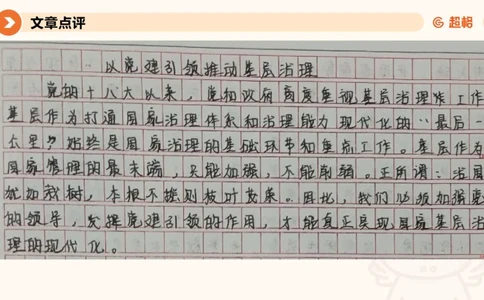 文章点评
超格
以党建引领推动基层治理
党的十八大以来，党和政府高度重视基层治理作工作
基层作为打通国家治理体系和治理能力现代化的“最后一
公里”始终是国家治理的基础环节和重点工作。基层作为
国家管理的最末端，只能加强，不能削弱。正所谓：治国
犹如栽树，本根不摇则枝叶茂荣。因此，我们必须加强党
的领导，发挥党建引领的作用，才能真正实现国家基层治
理的现代化。